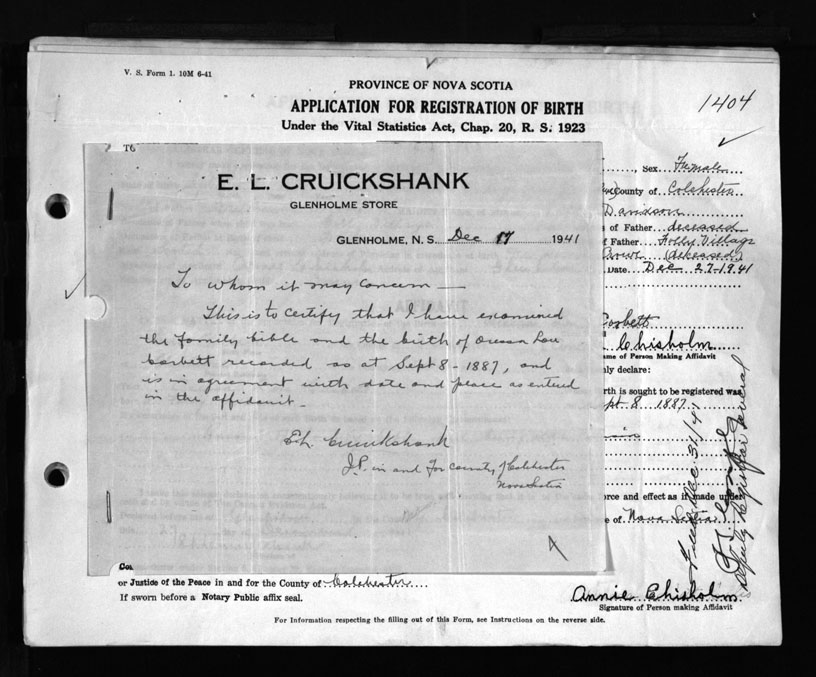 V. S. Form 1. 10M 6-41
PROVINCE OF NOVA SCOTIA
APPLICATION FOR REGISTRATION OF BIRTH
Under the Vital Statistics Act, Chap. 20, R. S. 1923
1404
TO
E. L. CRUICKSHANK
GLENHOLME STORE
GLENHOLME, N. S. Dec 17 1941
To whom it may concern —
This is to certify that I have examined
the family bible and the birth of Lou
Corbett recorded as at Sept 8 - 1887, and
is in agreement with date and place as entered
in the affidavit -
E L Cruickshank
J.P. in and For County of Colchester
Nova Scotia
, Sex Female
County of Colchester
Davidson
of Father deceased
of Father Folly Village
(deceased)
Date Dec 27-1941
Corbett
Chisholm
ame of Person Making Affidavit
ly declare:
rth is sought to be registered was
pt 8 1887
orce and effect as if made under
e of Nova Scotia
Filed Dec 31/41
Deputy Registrar General
or Justice of the Peace in and for the County of Colchester
If sworn before a Notary Public affix seal.
Annie Chisholm
Signature of Person making Affidavit
For Information respecting the filling out of this Form, see Instructions on the reverse side.